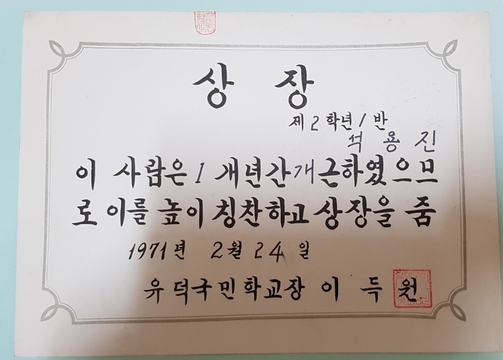 상 장
제 2 학년 1 반
석 용 진
이 사람은 1 개년간 개근하였으므
로 이를 높이 칭찬하고 상장을 줌
1971년 2월 24일
유덕국민학교장 이 득 원